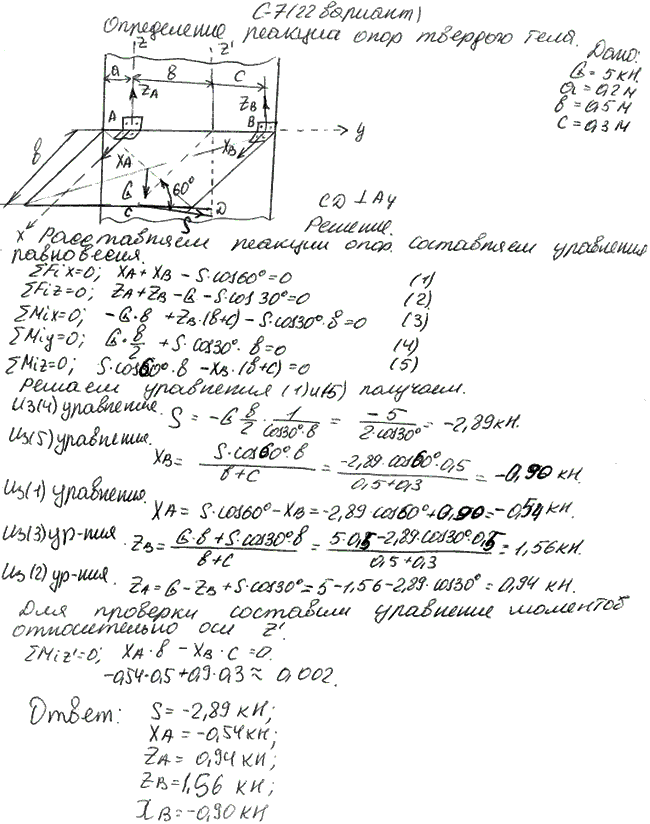 С-7 (22 вариант)
Определение реакции опор твердого тела.
Дано:
G = 5 кН.
a = 0,2 м
в = 0,5 м
c = 0,3 м
z z'
a в c
ZA ZB
A B y
XA XB
в
G 60°
C D
S
x
CD ⊥ Ay
Решение.
Расставляем реакции опор. составляем уравнения
равновесия.
ΣFix=0; XA + XB - S·cos60°=0 (1)
ΣFiz=0; ZA+ZB-G-S·cos30°=0 (2)
ΣMix=0; -G·в +ZB·(в+c) - S·cos30°·в =0 (3)
ΣMiy=0; G·в/2 + S·cos30°·в=0 (4)
ΣMiz=0; S·cos60°·в - XB·(в+c) =0 (5)
Решаем уравнения (1) и (5) получаем.
Из(4) уравнение. S = -G в/2 · 1/cos30°·в = -5/2·cos30° = -2,89 кН.
Из(5) уравнение. XB = S·cos60°·в/в+c = -2,89·cos60°·0,5/0,5+0,3 = -0,90 кН.
Из(1) уравнения XA = S·cos60° - XB = -2,89·cos60°+0,90 = -0,54 кН.
Из(3) ур-ния. ZB = G·в + S·cos30°·в/в+c = 5·0,5-2,89·cos30°·0,5/0,5+0,3 = 1,56 кН.
Из(2) ур-ния. ZA = G - ZB + S·cos30° = 5-1,56-2,89·cos30° = 0,94 кН.
Для проверки составим уравнение моментов
относительно оси z'.
ΣMiz'=0; XA·в - XB·c =0.
-0,54·0,5+0,9·0,3 ≈ 0,002.
Ответ: S = -2,89 кН;
XA = -0,54 кН;
ZA = 0,94 кН;
ZB = 1,56 кН;
XB = -0,90 кН